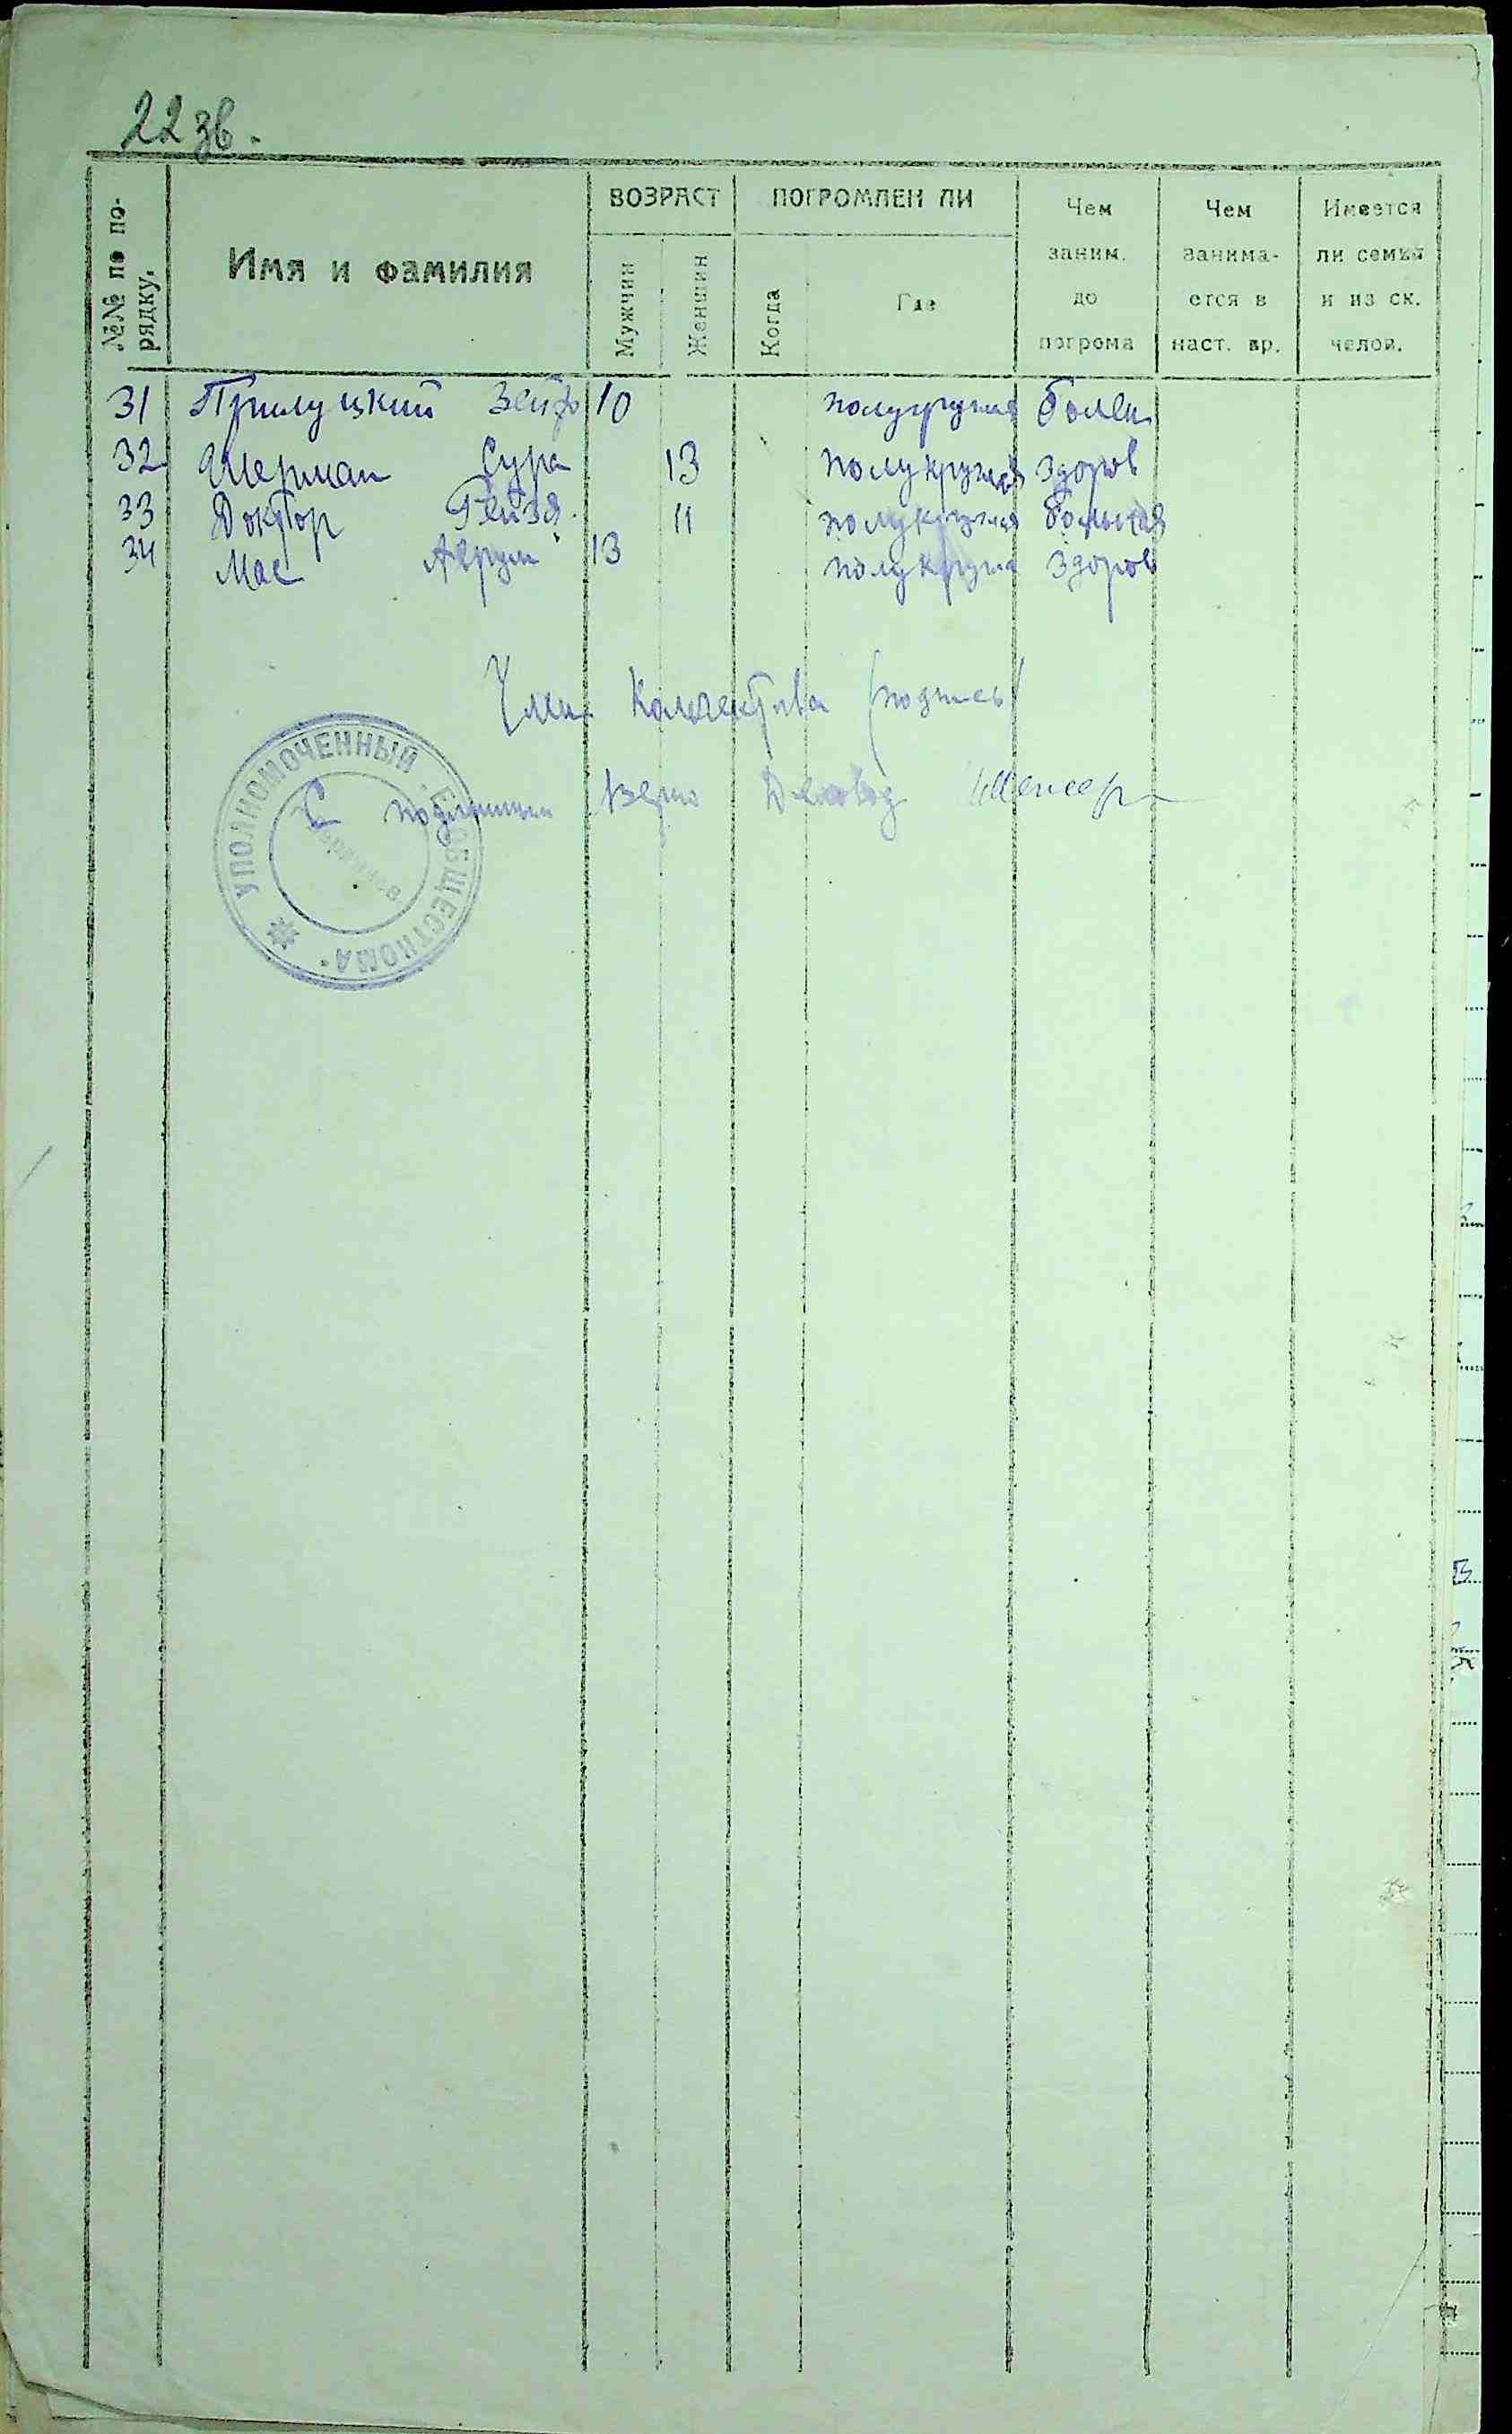 22 зв.
№№ по порядку.
Имя и фамилия
ВОЗРАСТ
Мужчин
Женщин
ПОГРОМЛЕН ЛИ
Когда
Где
Чем
заним.
до
погрома
Чем
занима-
ется в
наст. вр.
Имеется
ли семья
и из ск.
челов.
31 Прилуцкий Зейф 10 полукруглая болен
32 Шерман Сура 13 полукруглая здоров
33 Доктор Гейзя 11 полукруглая больная
34 Мас Аврум 13 полукругла здоров
Член Коллектива (подпись)
С подлинным верно Деловод
УПОЛНОМОЧЕННЫЙ „ЕВОБЩЕСТКОМА"